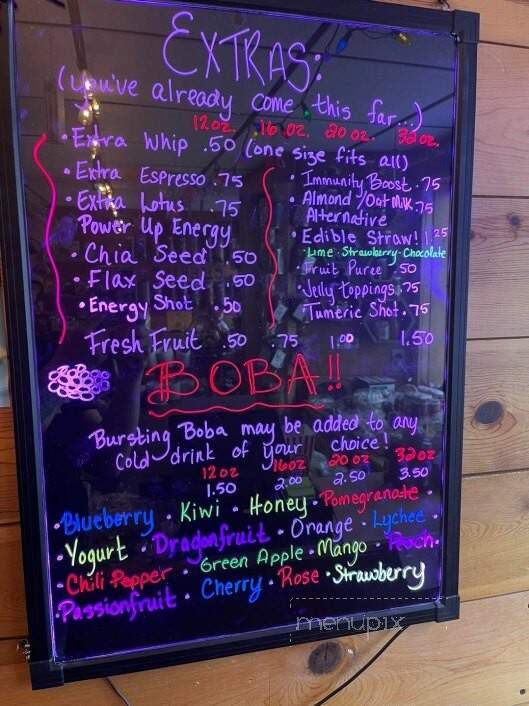 EXTRAS:
(you've already come this far...)
12oz. 16 oz. 20 oz. 32oz.
• Extra Whip .50 (one size fits all)
• Extra Espresso .75
• Extra Lotus .75
Power Up Energy
• Chia Seed .50
• Flax Seed .50
• Energy Shot .50
• Immunity Boost .75
• Almond/Oat Milk .75
Alternative
• Edible Straw! 1.25
• Lime • Strawberry • Chocolate
• Fruit Puree .50
• Jelly toppings .75
• Tumeric Shot .75
Fresh Fruit .50 .75 1.00 1.50
BOBA!!
Bursting Boba may be added to any
cold drink of your choice!
12oz 16oz 20oz 32oz
1.50 2.00 2.50 3.50
• Blueberry • Kiwi • Honey • Pomegranate •
• Yogurt • Dragonfruit • Orange • Lychee •
• Chili Pepper • Green Apple • Mango • Peach •
• Passionfruit • Cherry • Rose • Strawberry
menupix